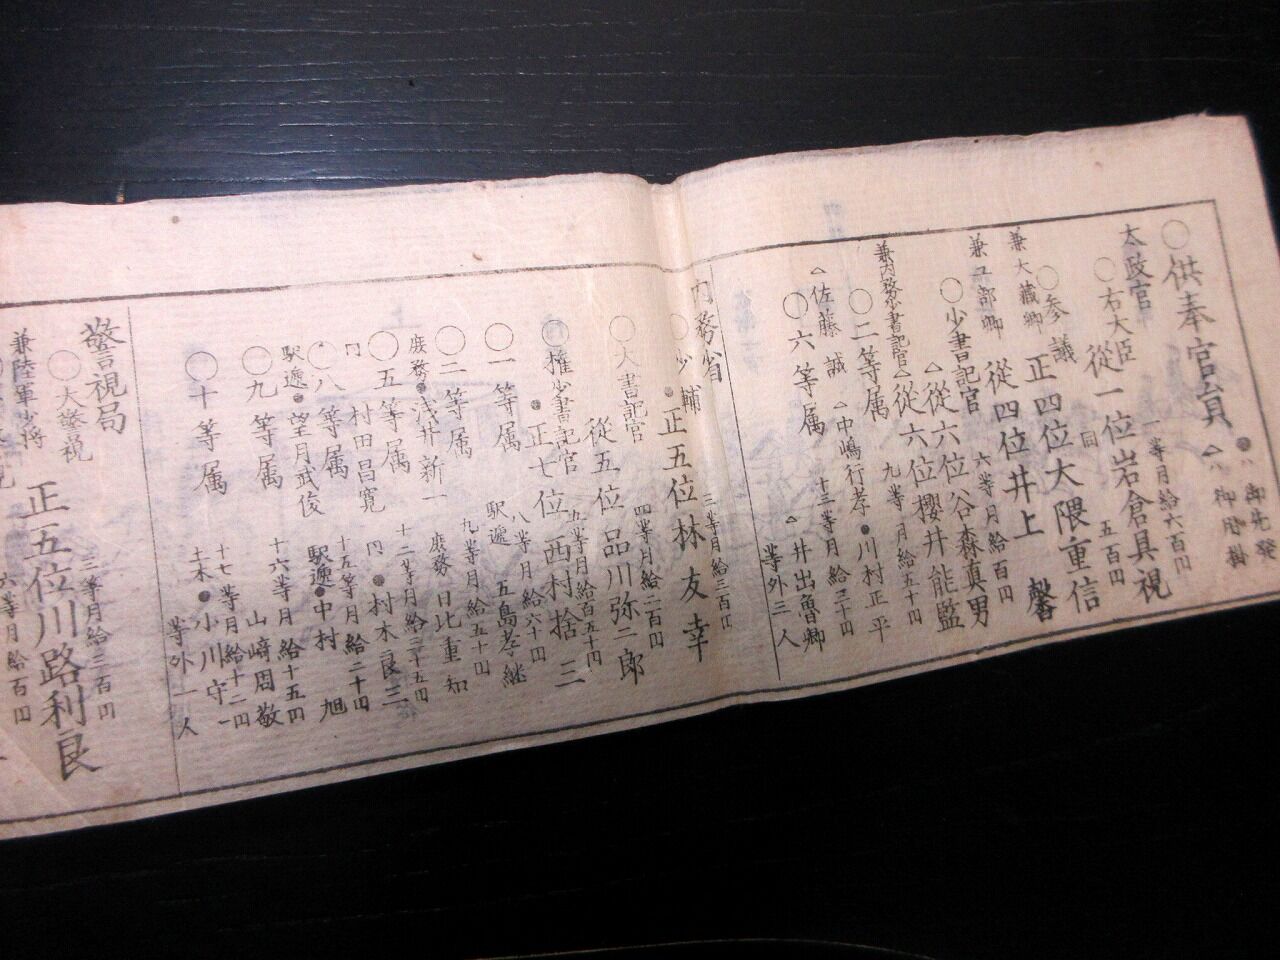 ○供奉官員
●ハ御先発
△ハ御用掛
太政官
○右大臣 一等月給六百円
従一位岩倉具視
○参議 同 五百円
兼大蔵卿 正四位大隈重信
兼工部卿 従四位井上 馨
○少書記官 六等月給百円
△従六位谷森真男
兼内務少書記官△従六位櫻井能監
○二等属 九等月給五十円
●川村正平
△佐藤 誠 △中嶋行孝
○六等属 十三等月給三十円
△井出魯卿
等外三人
内務省
○少輔 三等月給三百円
●正五位林 友幸
○大書記官 四等月給二百円
従五位 品川弥二郎
○権少書記官 五等月給百五十円
●正七位 西村捨三
○一等属 八等月給六十円
駅逓 五島孝継
○二等属 九等月給五十円
庶務●浅井新一 庶務 日比重知
○五等属 十二等月給三十五円
同 村田昌寛 同●村木良三
○八等属 十五等月給二十円
駅逓●望月武俊 駅逓●中村 旭
○九等属 十六等月給十五円
山崎周敬
○十等属 十七等月給十二円
土木●小川守一
等外一人
警視局
○大警視 三等月給三百円
兼陸軍少将 正五位川路利良
六等月給百円